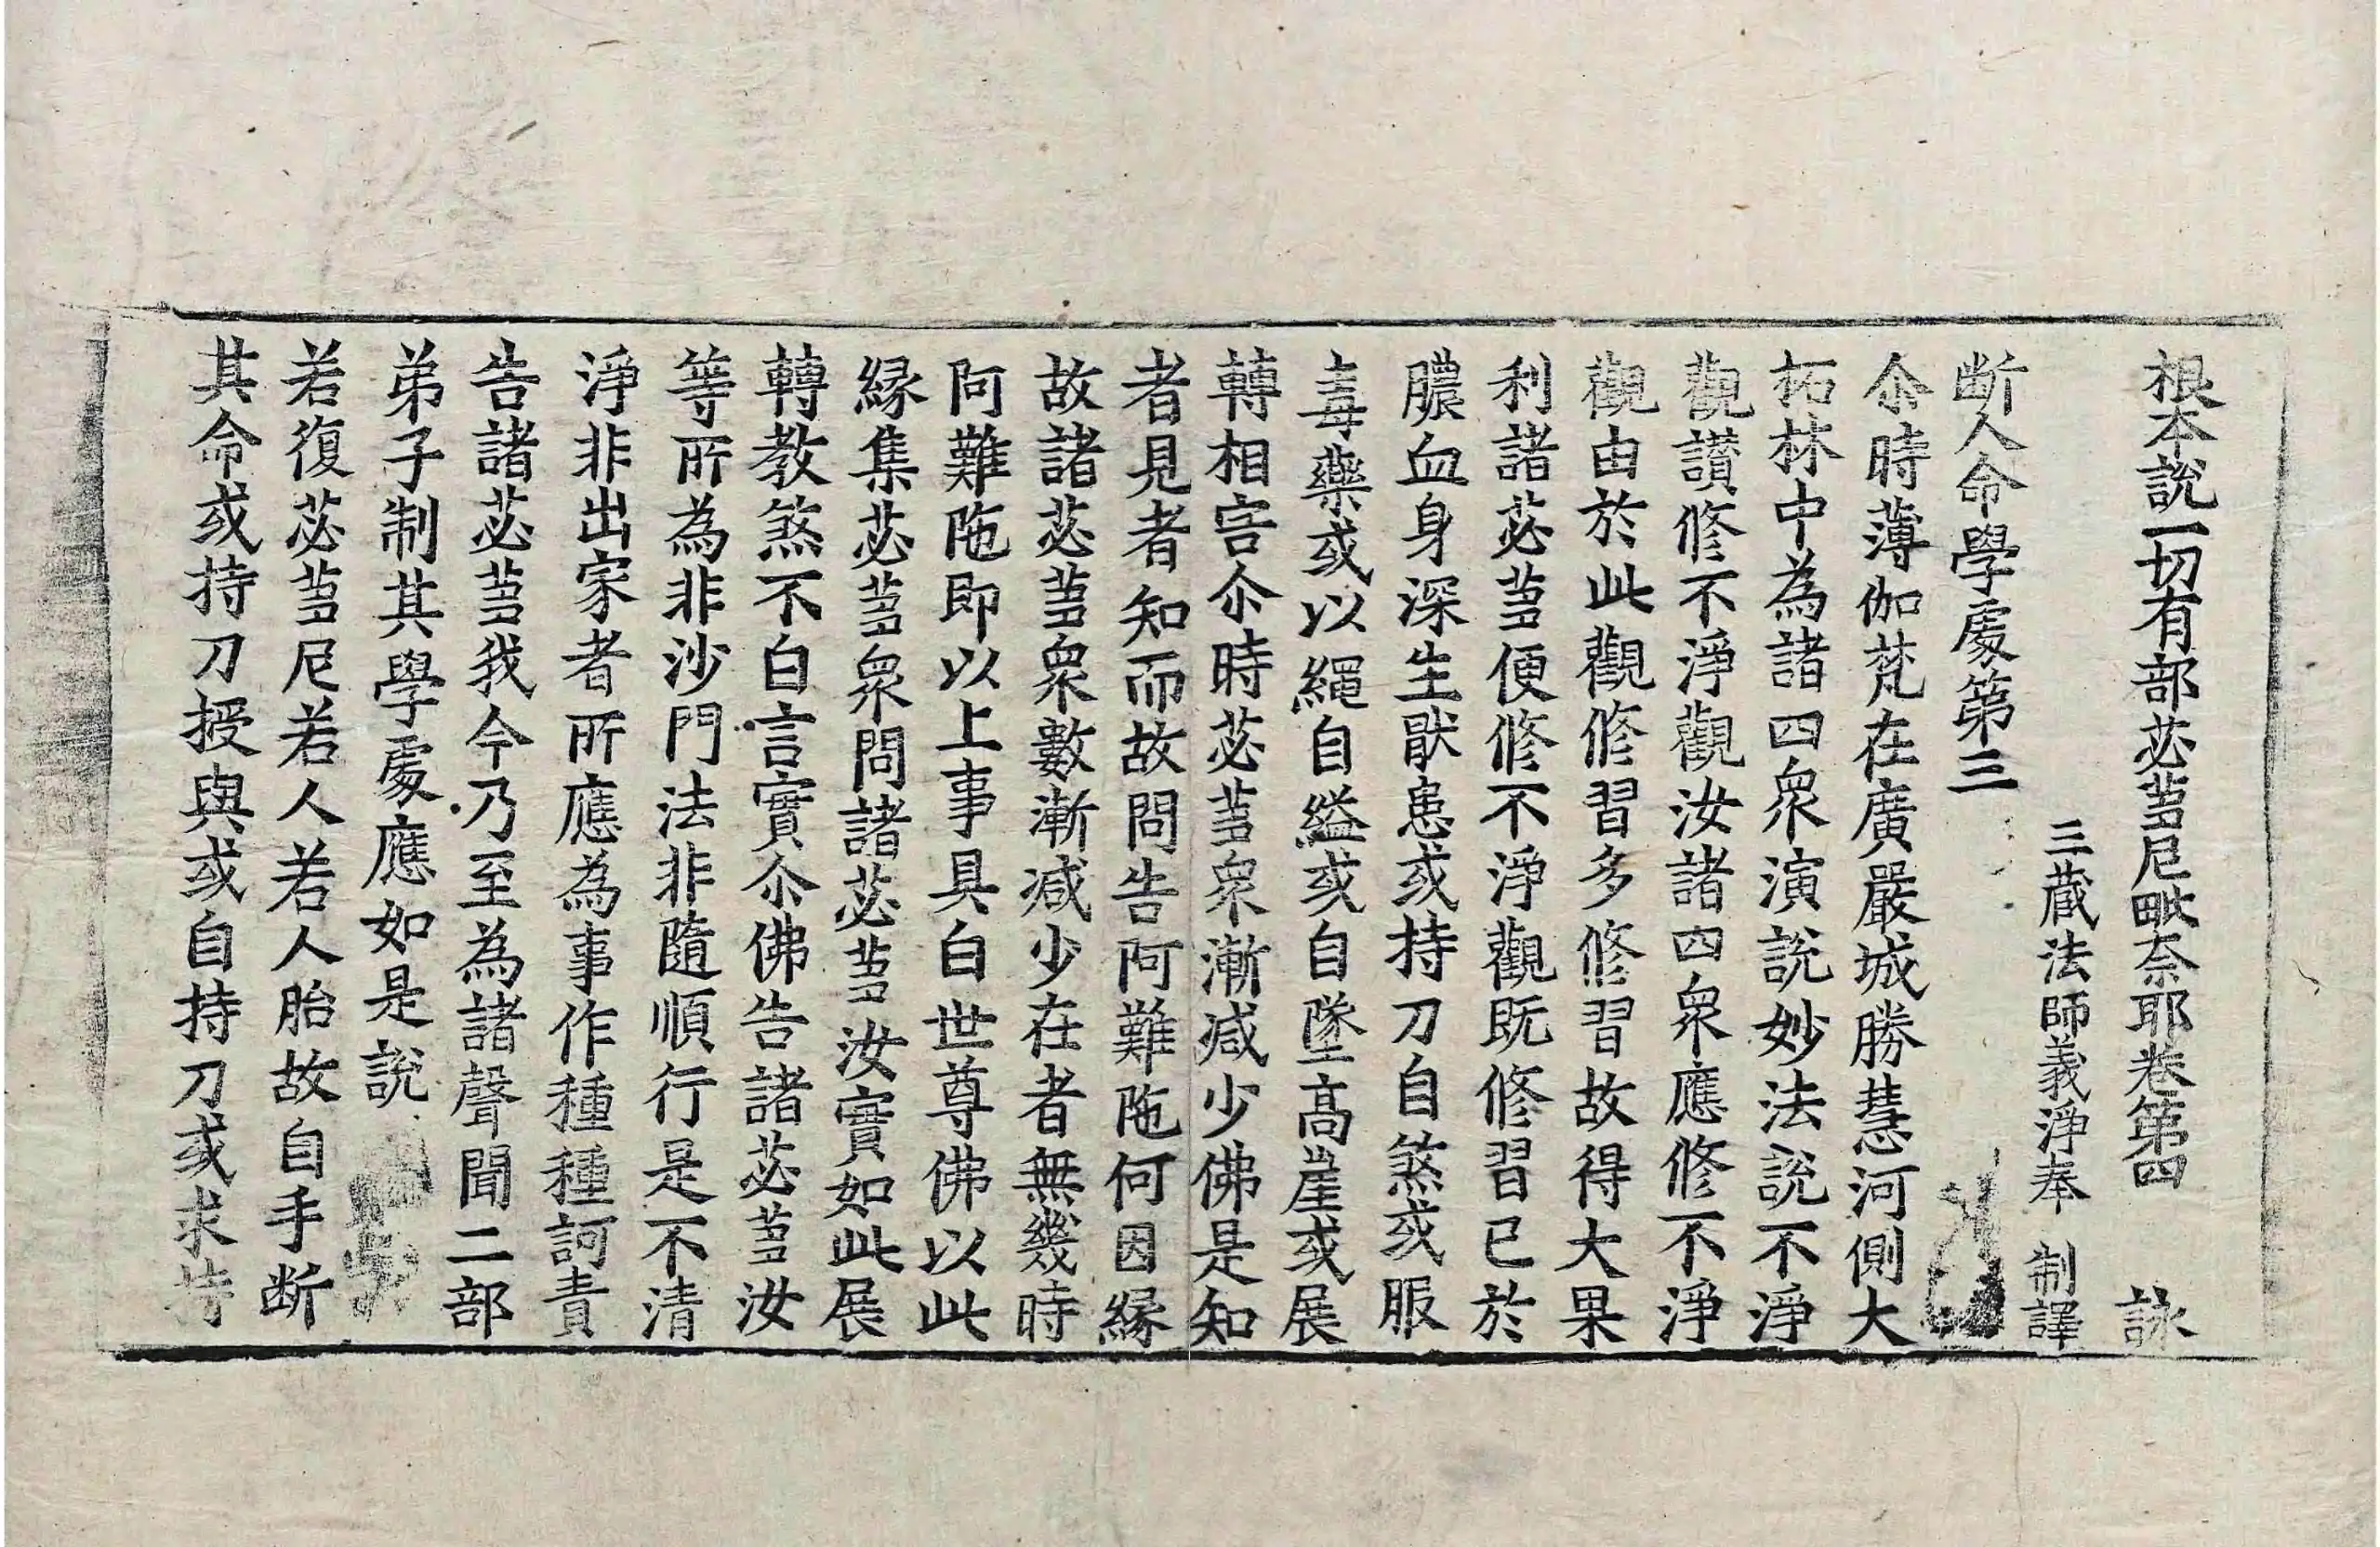 根本說一切有部苾蒭尼毗奈耶卷第四 詠
三藏法師義淨奉 制譯
斷人命學處第三
尒時薄伽梵在廣嚴城勝慧河側大
柘林中為諸四衆演說妙法說不淨
觀讃修不淨觀汝諸四衆應修不淨
觀由於此觀修習多修習故得大果
利諸苾蒭便修不淨觀既修習已於
膿血身深生猒患或持刀自煞或服
毒藥或以繩自縊或自墜高崖或展
轉相害尒時苾蒭衆漸减少佛是知
者見者知而故問告阿難陁何因縁
故諸苾蒭衆數漸减少在者無幾時
阿難陁即以上事具白世尊佛以此
縁集苾蒭衆問諸苾蒭汝實如此展
轉教煞不白言實尒佛告諸苾蒭汝
等所為非沙門法非隨順行是不清
淨非出家者所應為事作種種訶責
告諸苾蒭我今乃至為諸聲聞二部
弟子制其學處應如是說
若復苾蒭尼若人若人胎故自手斷
其命或持刀授與或自持刀或求持